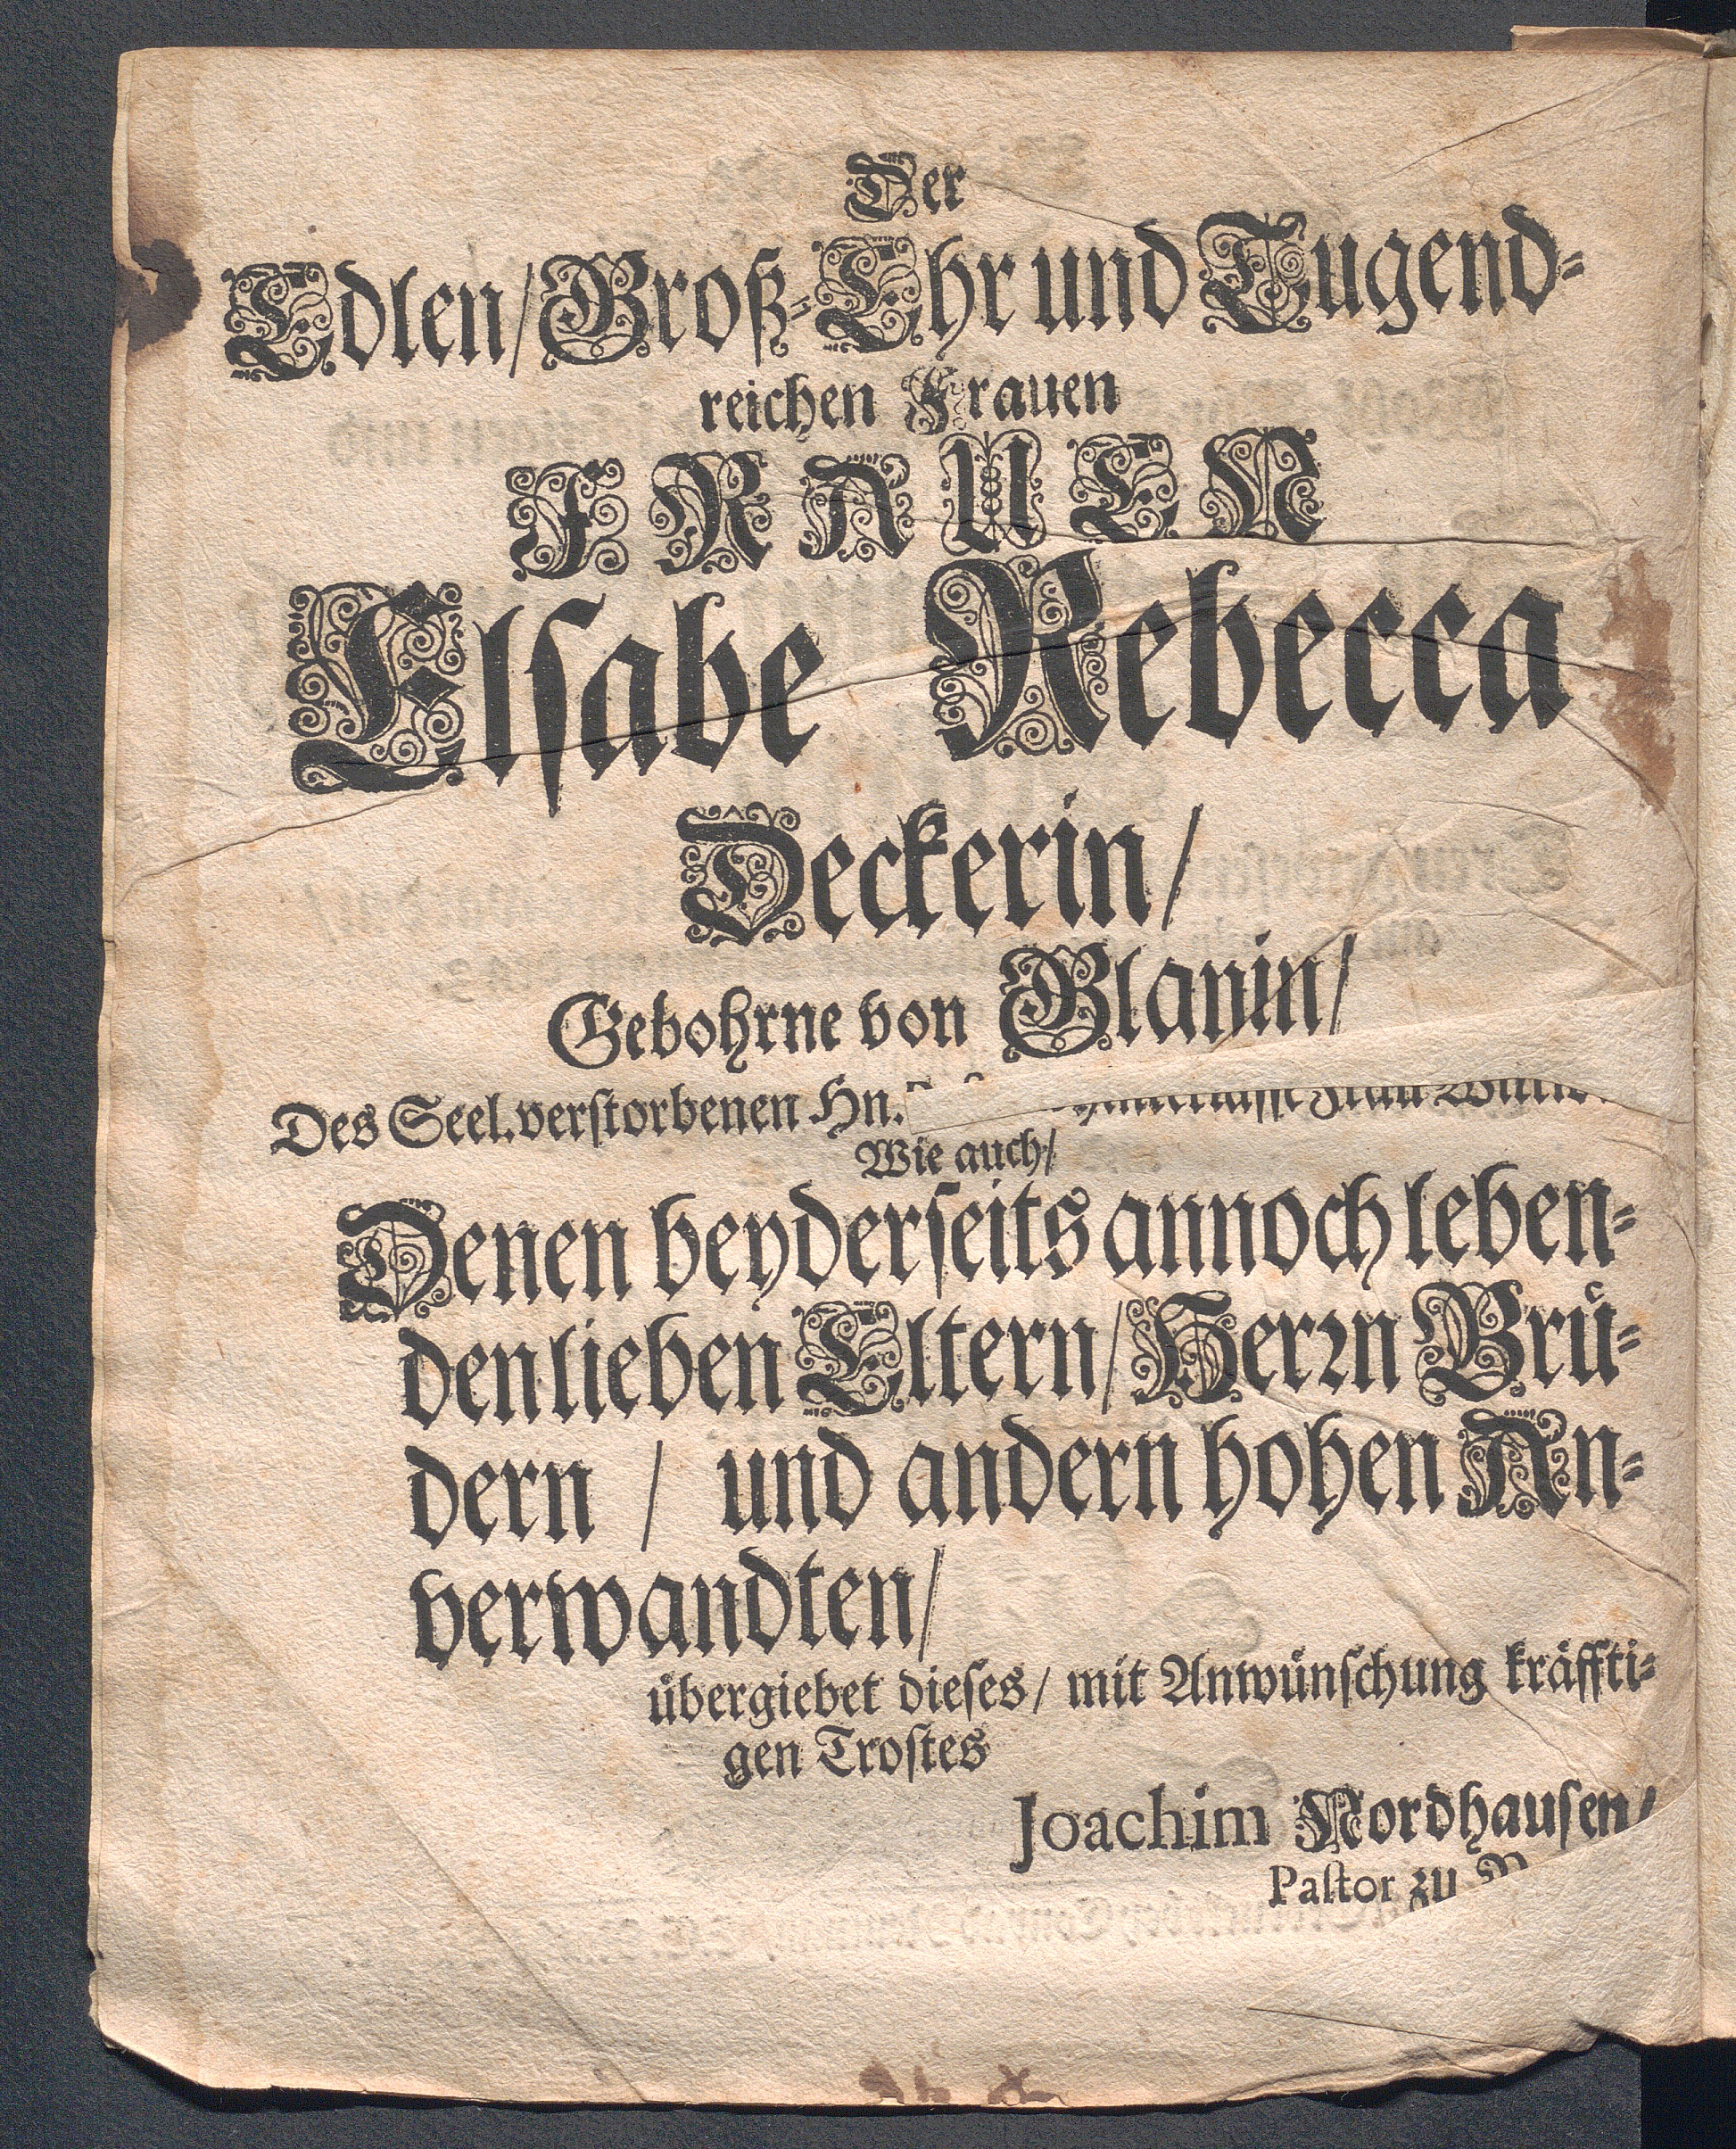 Der
Edlen/ Groß-Ehr und Tugend-
reichen Frauen
FRAUEN
Elsabe Rebecca
Deckerin/
Gebohrne von Glanin/
Des Seel. verstorbenen Hn.
Wie auch/
Denen beyderseits annoch leben-
den lieben Eltern/ Herrn Brü-
dern / und andern hohen An-
verwandten/
übergiebet dieses/ mit Anwünschung kräffti-
gen Trostes
Joachim Nordhausen/
Pastor zu